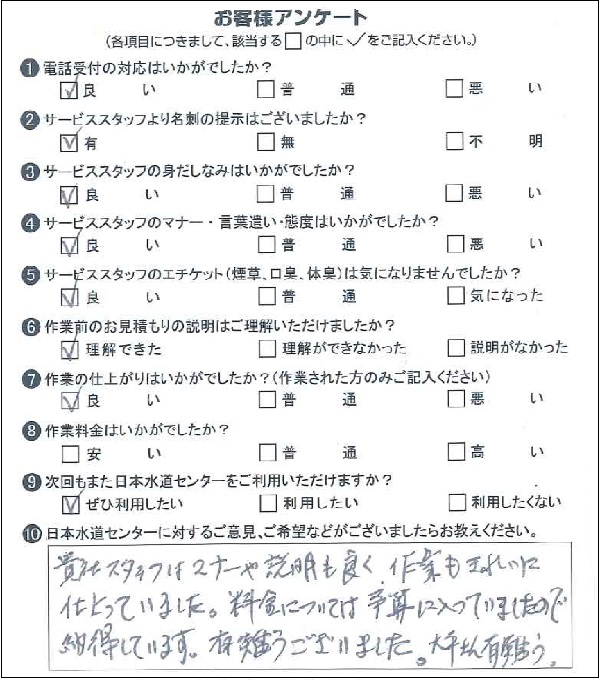 お客様アンケート
(各項目につきまして、該当する□の中に✓をご記入ください。)
❶ 電話受付の対応はいかがでしたか？
☑ 良い □ 普通 □ 悪い
❷ サービススタッフより名刺の提示はございましたか？
☑ 有 □ 無 □ 不明
❸ サービススタッフの身だしなみはいかがでしたか？
☑ 良い □ 普通 □ 悪い
❹ サービススタッフのマナー・言葉遣い・態度はいかがでしたか？
☑ 良い □ 普通 □ 悪い
❺ サービススタッフのエチケット(煙草、口臭、体臭)は気になりませんでしたか？
☑ 良い □ 普通 □ 気になった
❻ 作業前のお見積もりの説明はご理解いただけましたか？
☑ 理解できた □ 理解ができなかった □ 説明がなかった
❼ 作業の仕上がりはいかがでしたか？(作業された方のみご記入ください)
☑ 良い □ 普通 □ 悪い
❽ 作業料金はいかがでしたか？
□ 安い □ 普通 □ 高い
❾ 次回もまた日本水道センターをご利用いただけますか？
☑ ぜひ利用したい □ 利用したい □ 利用したくない
❿ 日本水道センターに対するご意見、ご希望などがございましたらお教えください。
貴社スタッフはマナーや説明も良く、作業もきれいに
仕上っていました。料金については予算に入っていましたので
納得しています。有難うございました。有難う。